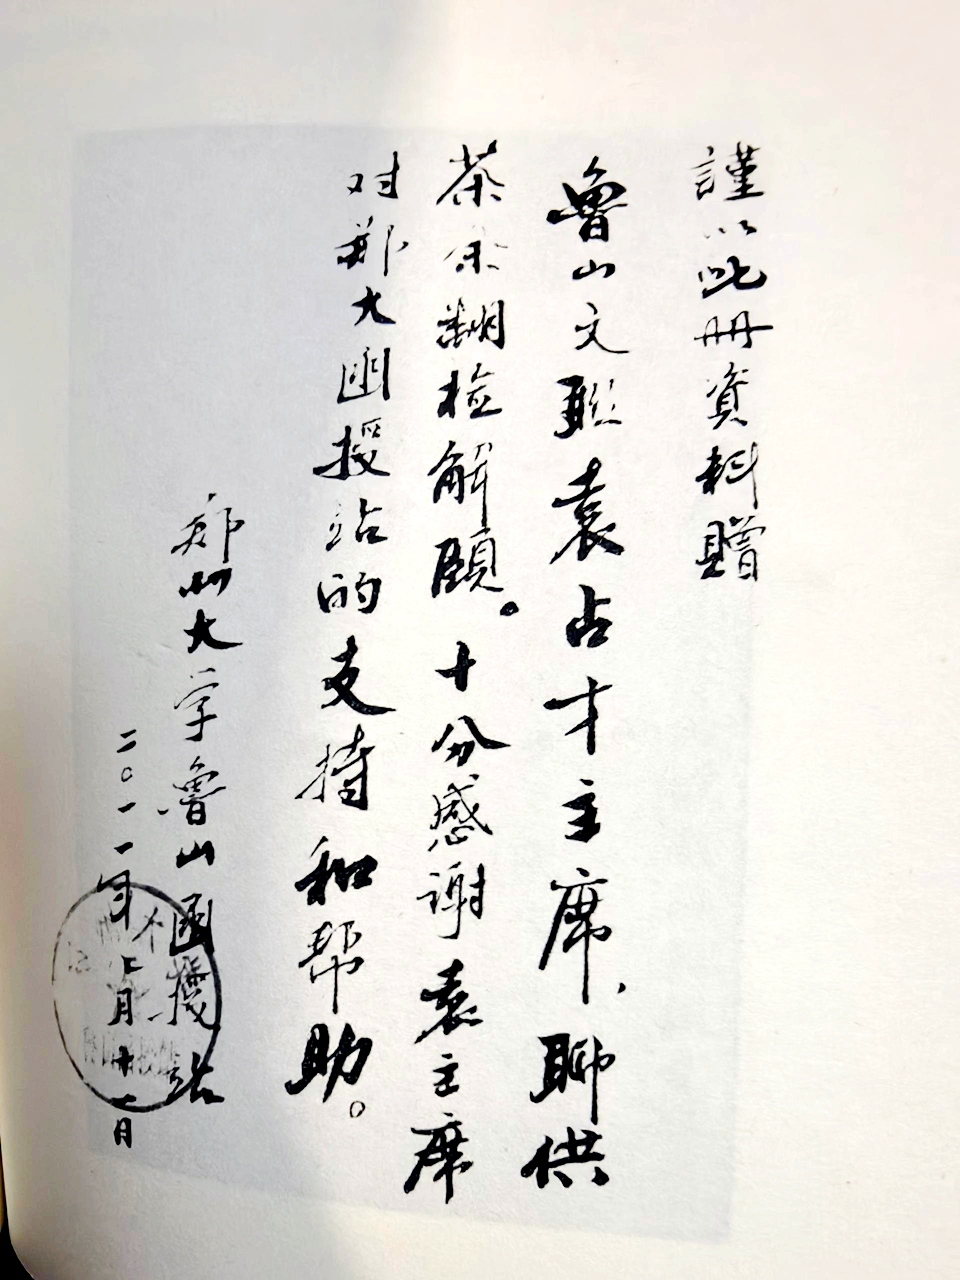 謹以此册資料贈
魯山文联袁占才主席,聊供
茶余翻检解頤。十分感谢袁主席
对郑大函授站的支持和帮助。
郑州大学魯山函授站
二〇一一年七月十一日